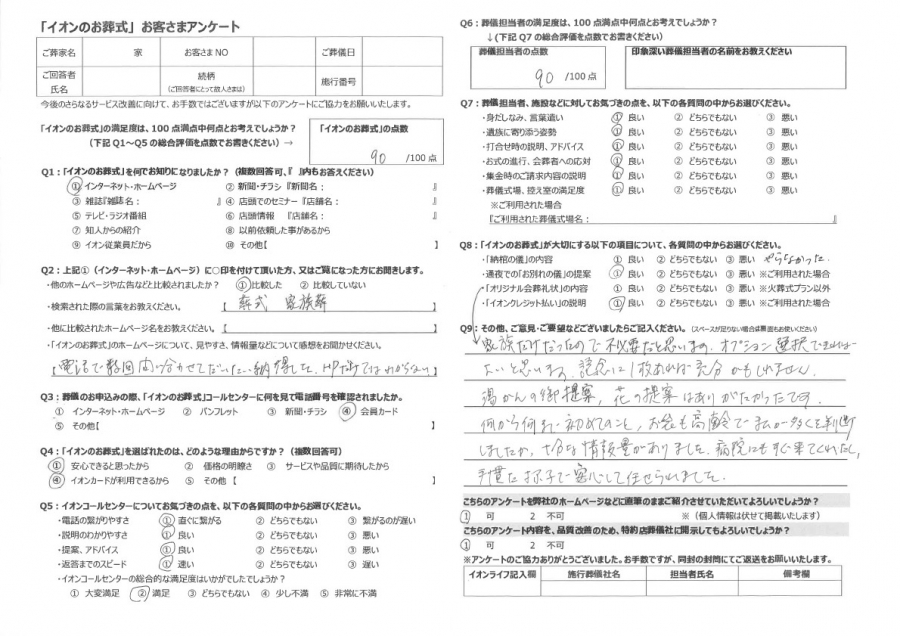 「イオンのお葬式」お客さまアンケート
ご葬家名 家 お客さまNO ご葬儀日
ご回答者氏名 続柄（ご回答者にとって故人さまは） 施行番号
今後のさらなるサービス改善に向けて、お手数ではございますが以下のアンケートにご協力をお願いいたします。
「イオンのお葬式」の満足度は、100点満点中何点とお考えでしょうか？
（下記Q1～Q5の総合評価を点数でお書きください）→
「イオンのお葬式」の点数
90 /100点
Q1：「イオンのお葬式」を何でお知りになりましたか？（複数回答可、『 』内もお答えください）
① インターネット・ホームページ ② 新聞・チラシ『新聞名： 』
③ 雑誌『雑誌名： 』 ④ 店頭でのセミナー『店舗名： 』
⑤ テレビ・ラジオ番組 ⑥ 店頭情報 『店舗名： 』
⑦ 知人からの紹介 ⑧ 以前依頼した事があるから
⑨ イオン従業員だから ⑩ その他【 】
Q2：上記①（インターネット・ホームページ）に○印を付けて頂いた方、又はご覧になった方にお聞きします。
・他のホームページや広告などと比較されましたか？ ① 比較した ② 比較していない
・検索された際の言葉をお教えください。 【 葬式 家族葬 】
・他に比較されたホームページ名をお教えください。【 】
・「イオンのお葬式」のホームページについて、見やすさ、情報量などについて感想をお聞かせください。
【電話で数回問い合わせてだいたい納得した。HPだけではわからない】
Q3：葬儀のお申込みの際、「イオンのお葬式」コールセンターに何を見て電話番号を確認されましたか。
① インターネット・ホームページ ② パンフレット ③ 新聞・チラシ ④ 会員カード
⑤ その他【 】
Q4：「イオンのお葬式」を選ばれたのは、どのような理由からですか？（複数回答可）
① 安心できると思ったから ② 価格の明瞭さ ③ サービスや品質に期待したから
④ イオンカードが利用できるから ⑤ その他【 】
Q5：イオンコールセンターについてお気づきの点を、以下の各質問の中からお選びください。
・電話の繋がりやすさ ① 直ぐに繋がる ② どちらでもない ③ 繋がるのが遅い
・説明のわかりやすさ ① 良い ② どちらでもない ③ 悪い
・提案、アドバイス ① 良い ② どちらでもない ③ 悪い
・返答までのスピード ① 速い ② どちらでもない ③ 遅い
・イオンコールセンターの総合的な満足度はいかがでしたでしょうか？
① 大変満足 ② 満足 ③ どちらでもない ④ 少し不満 ⑤ 非常に不満
Q6：葬儀担当者の満足度は、100点満点中何点とお考えでしょうか？
↓（下記Q7の総合評価を点数でお書きください）
葬儀担当者の点数 印象深い葬儀担当者の名前をお教えください
90 /100点
Q7：葬儀担当者、施設などに対してお気づきの点を、以下の各質問の中からお選びください。
・身だしなみ、言葉遣い ① 良い ② どちらでもない ③ 悪い
・遺族に寄り添う姿勢 ① 良い ② どちらでもない ③ 悪い
・打合せ時の説明、アドバイス ① 良い ② どちらでもない ③ 悪い
・お式の進行、会葬者への応対 ① 良い ② どちらでもない ③ 悪い
・集金時のご請求内容の説明 ① 良い ② どちらでもない ③ 悪い
・葬儀式場、控え室の満足度 ① 良い ② どちらでもない ③ 悪い
※ご利用された場合
『ご利用された葬儀式場名： 』
Q8：「イオンのお葬式」が大切にする以下の項目について、各質問の中からお選びください。
・「納棺の儀」の内容 ① 良い ② どちらでもない ③ 悪い やらなかった
・通夜での「お別れの儀」の提案 ① 良い ② どちらでもない ③ 悪い ※ご利用された場合
・「オリジナル会葬礼状」の内容 ① 良い ② どちらでもない ③ 悪い ※火葬式プラン以外
・「イオンクレジット払い」の説明 ① 良い ② どちらでもない ③ 悪い ※ご利用された場合
Q9：その他、ご意見・ご要望などございましたらご記入ください。（スペースが足りない場合は裏面もお使いください）
家族だけだったので不必要だと思います。オプション選択できれば
よいと思います。記念に1枚あれば充分かもしれません。
湯かんの御提案、花の提案はありがたかったです。
何から何まで初めてのこと、お金も高齢で私が多くを判断
しましたが、十分な情報量がありました。病院にもすぐ来てくれたし、
丁寧な様子で安心して任せられました。
こちらのアンケートを弊社のホームページなどに直筆のままご紹介させていただいてよろしいでしょうか？
1 可 2 不可 ※（個人情報は伏せて掲載いたします）
こちらのアンケート内容を、品質改善のため、特約店葬儀社に開示してもよろしいでしょうか？
1 可 2 不可
※アンケートのご協力ありがとうございました。お手数ですが、同封の封筒にてご返送をお願いいたします。
イオンライフ記入欄 施行葬儀社名 担当者氏名 備考欄